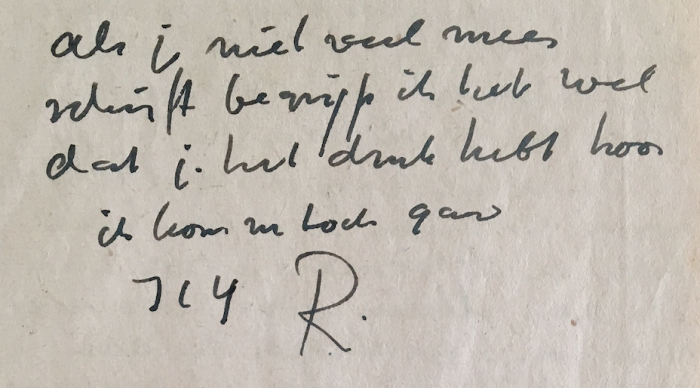 als j. niet veel meer
schrijft begrijp ik het wel
dat j. het druk hebt hoor
ik kom er toch gauw
R.